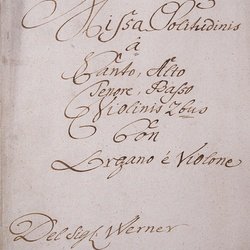 Missa Solitudinis
á
Canto, Alto
Tenore, Basso
Violinis 2bus
Con
Organo é Violone
Del Sig: Werner